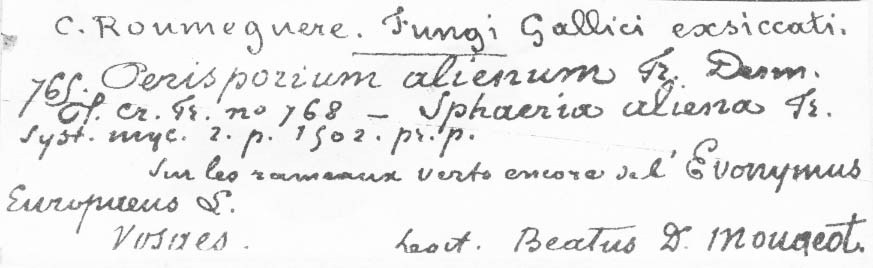 C. Roumeguere. Fungi Gallici exsiccati.
765. Perisporium alienum Fr. Desm.
Pl. Cr. Fr. no 768 — Sphaeria aliena Fr.
Syst. myc. 2. p. 1502. pr. p.
Sur les rameaux verts encore de l'Evonymus
Europaeus L.
Vosges. Leg. Beatus D. Mougeot.